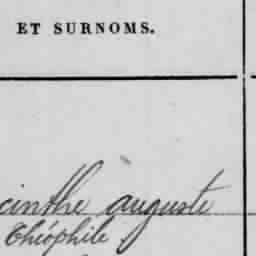 ET SURNOMS.
cinthe auguste
Théophile